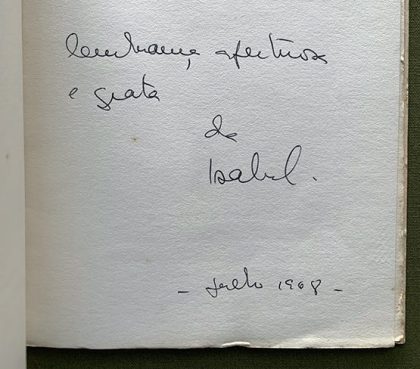 lembrança afectuosa
e grata
da
Isabel.
- Julho 1968 -